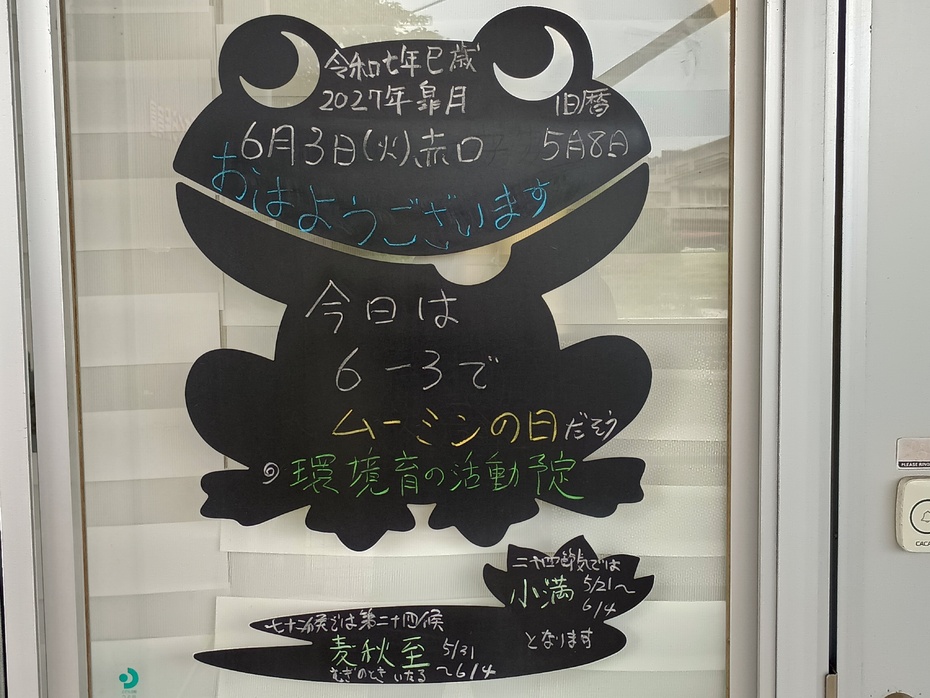 令和七年巳歳
2027年皐月
旧暦
6月3日(火)赤口
5月8日
おはようございます
今日は
6-3で
ムーミンの日だそう
◎環境育の活動予定
二十四節気では
小満 5/21～
6/4
となります
七十二候では第二十四候
麦秋至 5/31
むぎのときいたる ～6/4
PLEASE RING